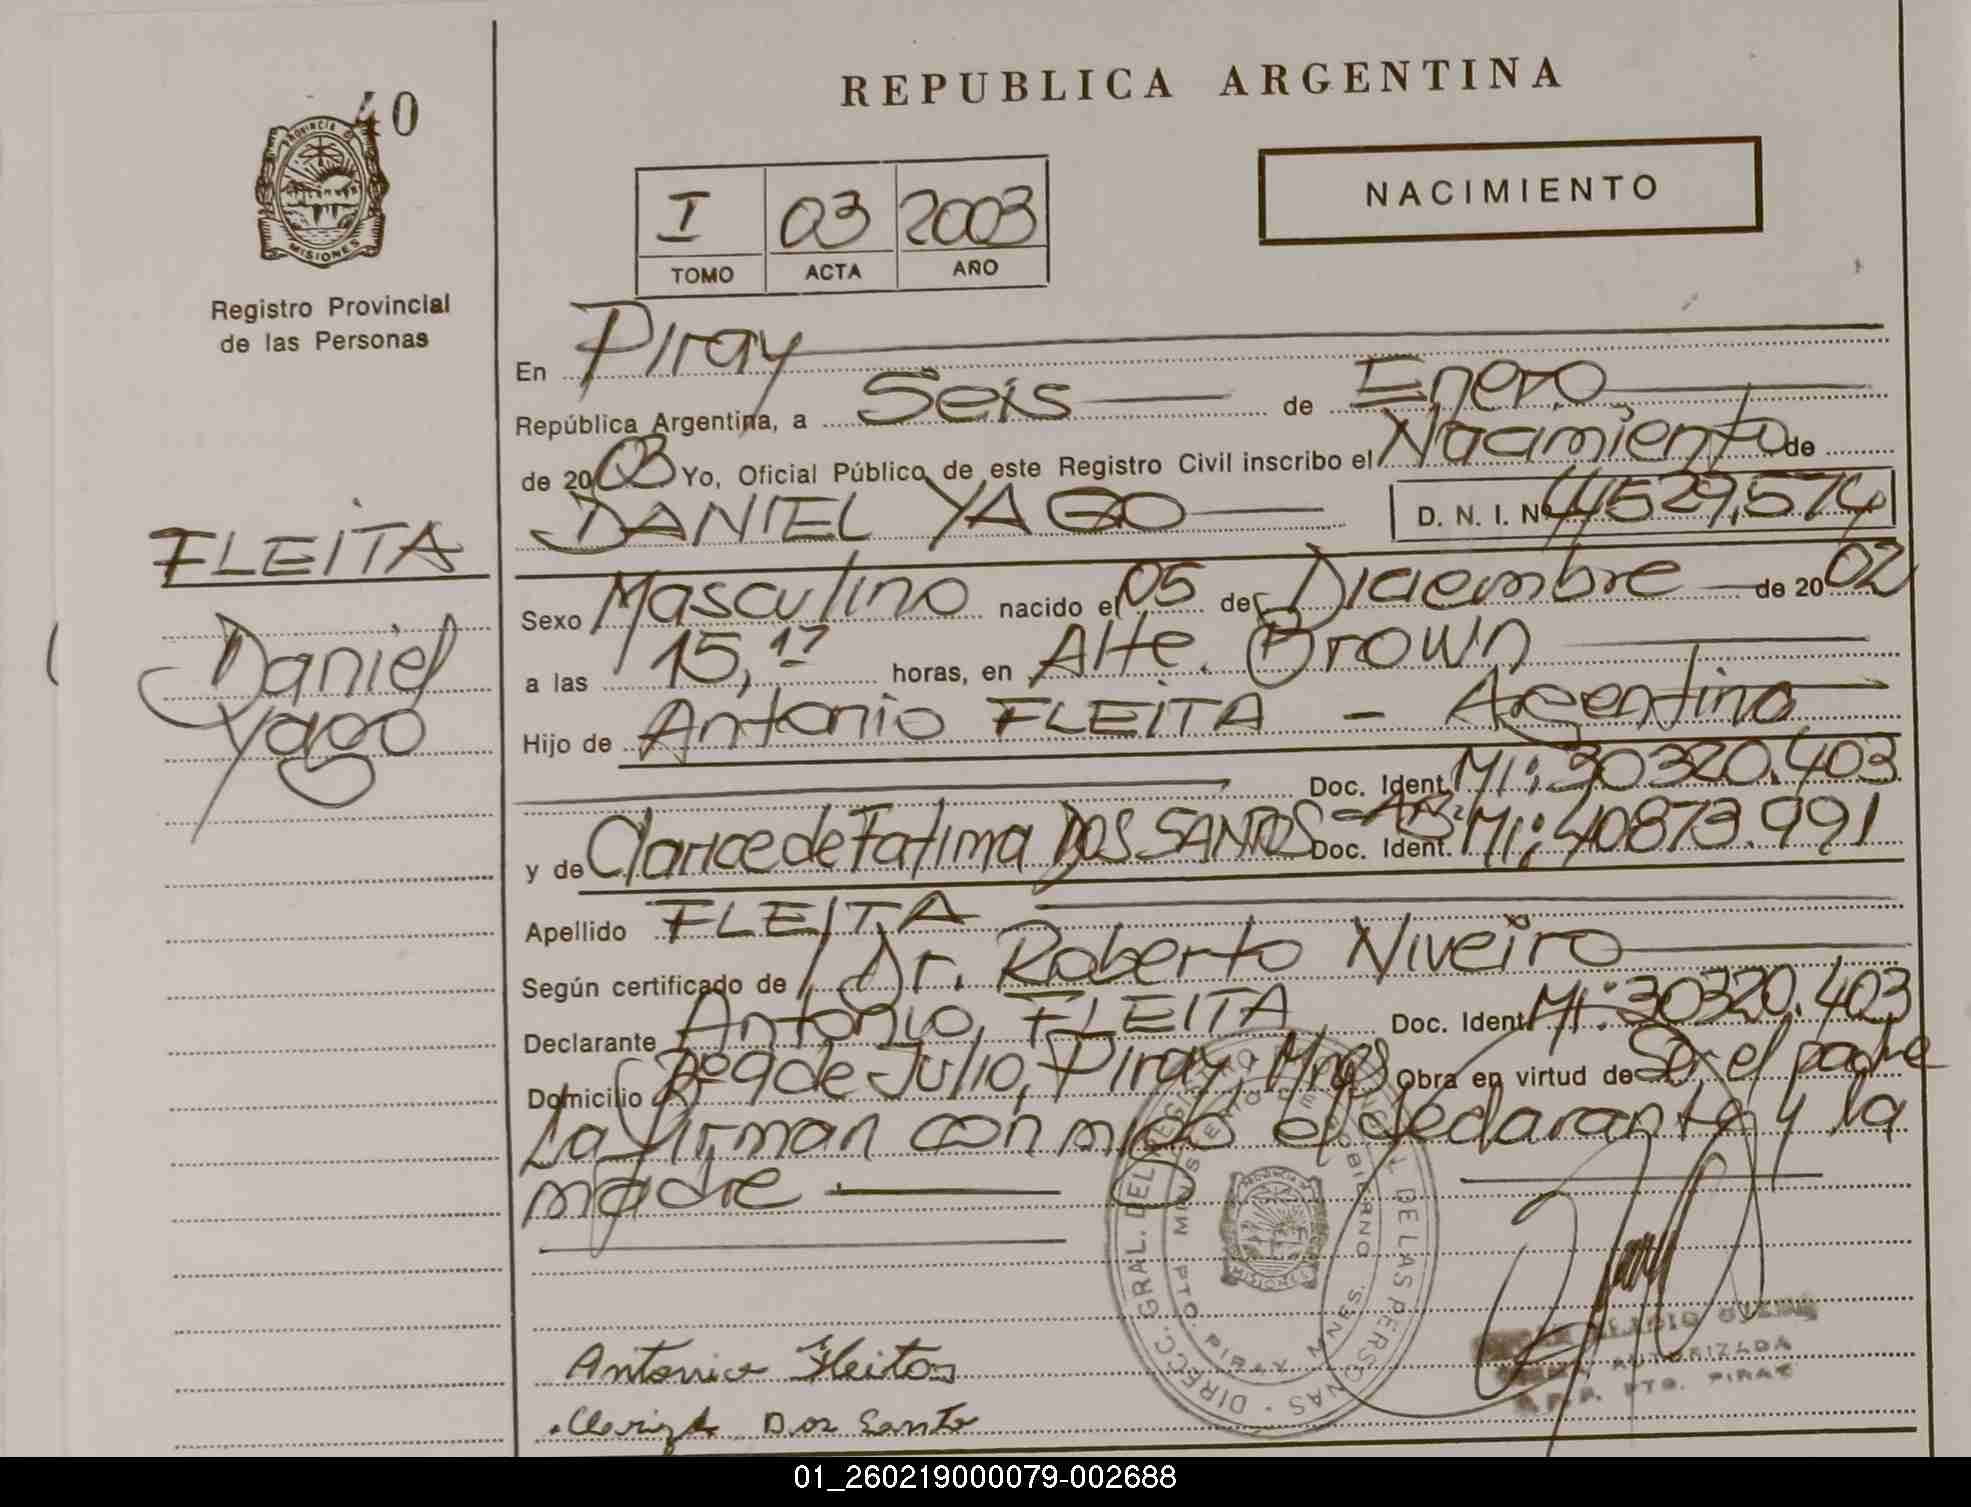 40
PROVINCIA DE
MISIONES
Registro Provincial
de las Personas
REPUBLICA ARGENTINA
NACIMIENTO
I 03 2003
TOMO ACTA AÑO
En Piray
República Argentina, a Seis de Enero
de 2003 Yo, Oficial Público de este Registro Civil inscribo el Nacimiento de
DANIEL YAGO D. N. I. Nº 44529,574
FLEITA
Daniel
Yago
Sexo Masculino nacido el 05 de Diciembre de 2002
a las 15,17 horas, en Alte. Brown
Hijo de Antonio FLEITA - Argentino
Doc. Ident. MI: 30320.403
y de Clarice de Fatima DOS SANTOS Doc. Ident. MI: 40873.991
Apellido FLEITA
Según certificado de Dr. Roberto Niveiro
Declarante Antonio FLEITA Doc. Ident. MI: 30320.403
Domicilio Bº 9 de Julio, Piray, Mnes Obra en virtud de Ser el padre
La firman conmigo el declarante y la
madre
DIRECC. GRAL. DEL REGISTRO DE LAS PERSONAS
PTO. PIRAY MNES.
MISIONES
Antonio Fleitas
Dos Santo
AUTORIZADA
PTO. PIRAY
01_260219000079-002688